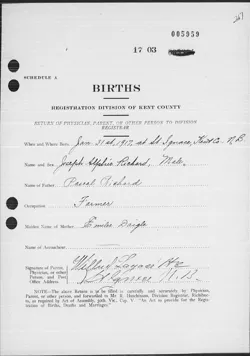 005959
17 03
SCHEDULE A
BIRTHS
REGISTRATION DIVISION OF KENT COUNTY
RETURN OF PHYSICIAN, PARENT, OR OTHER PERSON TO DIVISION
REGISTRAR
When and where Born Jan 21st, 1917, at St Ignace, Kent Co. N.B.
Name and Sex Joseph Alphie Richard, Male.
Name of Father Pascal Richard
Occupation Farmer
Maiden Name of Mother Emilie Daigle
Name of Accoucheur
Signature of Parent,
Physician, or other
Person and Post
Office Address
St Ignace N.B.
NOTE—The above Return is to be filled in carefully and accurately by Physician,
Parent, or other person, and forwarded to Division Registrar, Richibucto,
as required by Act of Assembly, Cap. V "An Act to provide for the
Registration of Births, Deaths and Marriages."